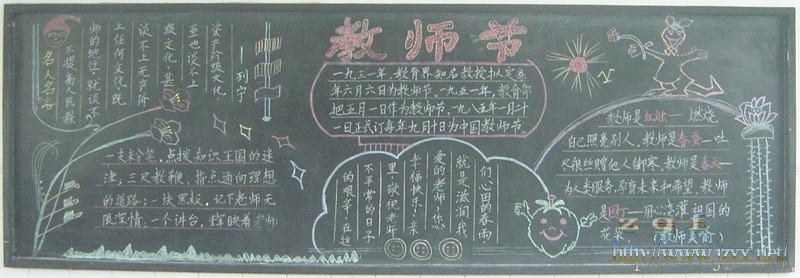 教师节
名人名言
不提高人民教
师的地位,就谈不
上任何文化,既
谈不上无产阶
级文化,甚
至也谈不上
资产阶级文化
—列宁
一九三一年,教育界知名教授拟定每
年六月六日为教师节,一九五一年,教育部
把五月一日作为教师节,一九八五年一月二十
一日正式订每年九月十日为中国教师节。
一支粉笔,点拨知识王国的迷
津;三尺教鞭,指点通向理想
的道路;一块黑板,记下老师无
限深情,一个讲台,辉映着老师
的艰辛,在这
不平常的日子
里,敬祝老师
幸福快乐!亲
爱的老师,您
就是滋润我
们心田的春雨
教师是红烛—燃烧
自己照亮别人,教师是春蚕—吐
尽银丝赠他人御寒,教师是春天—
为人类服务,孕育未来和希望,教师
是园丁—用心浇灌祖国的
花朵。(教师美喻)